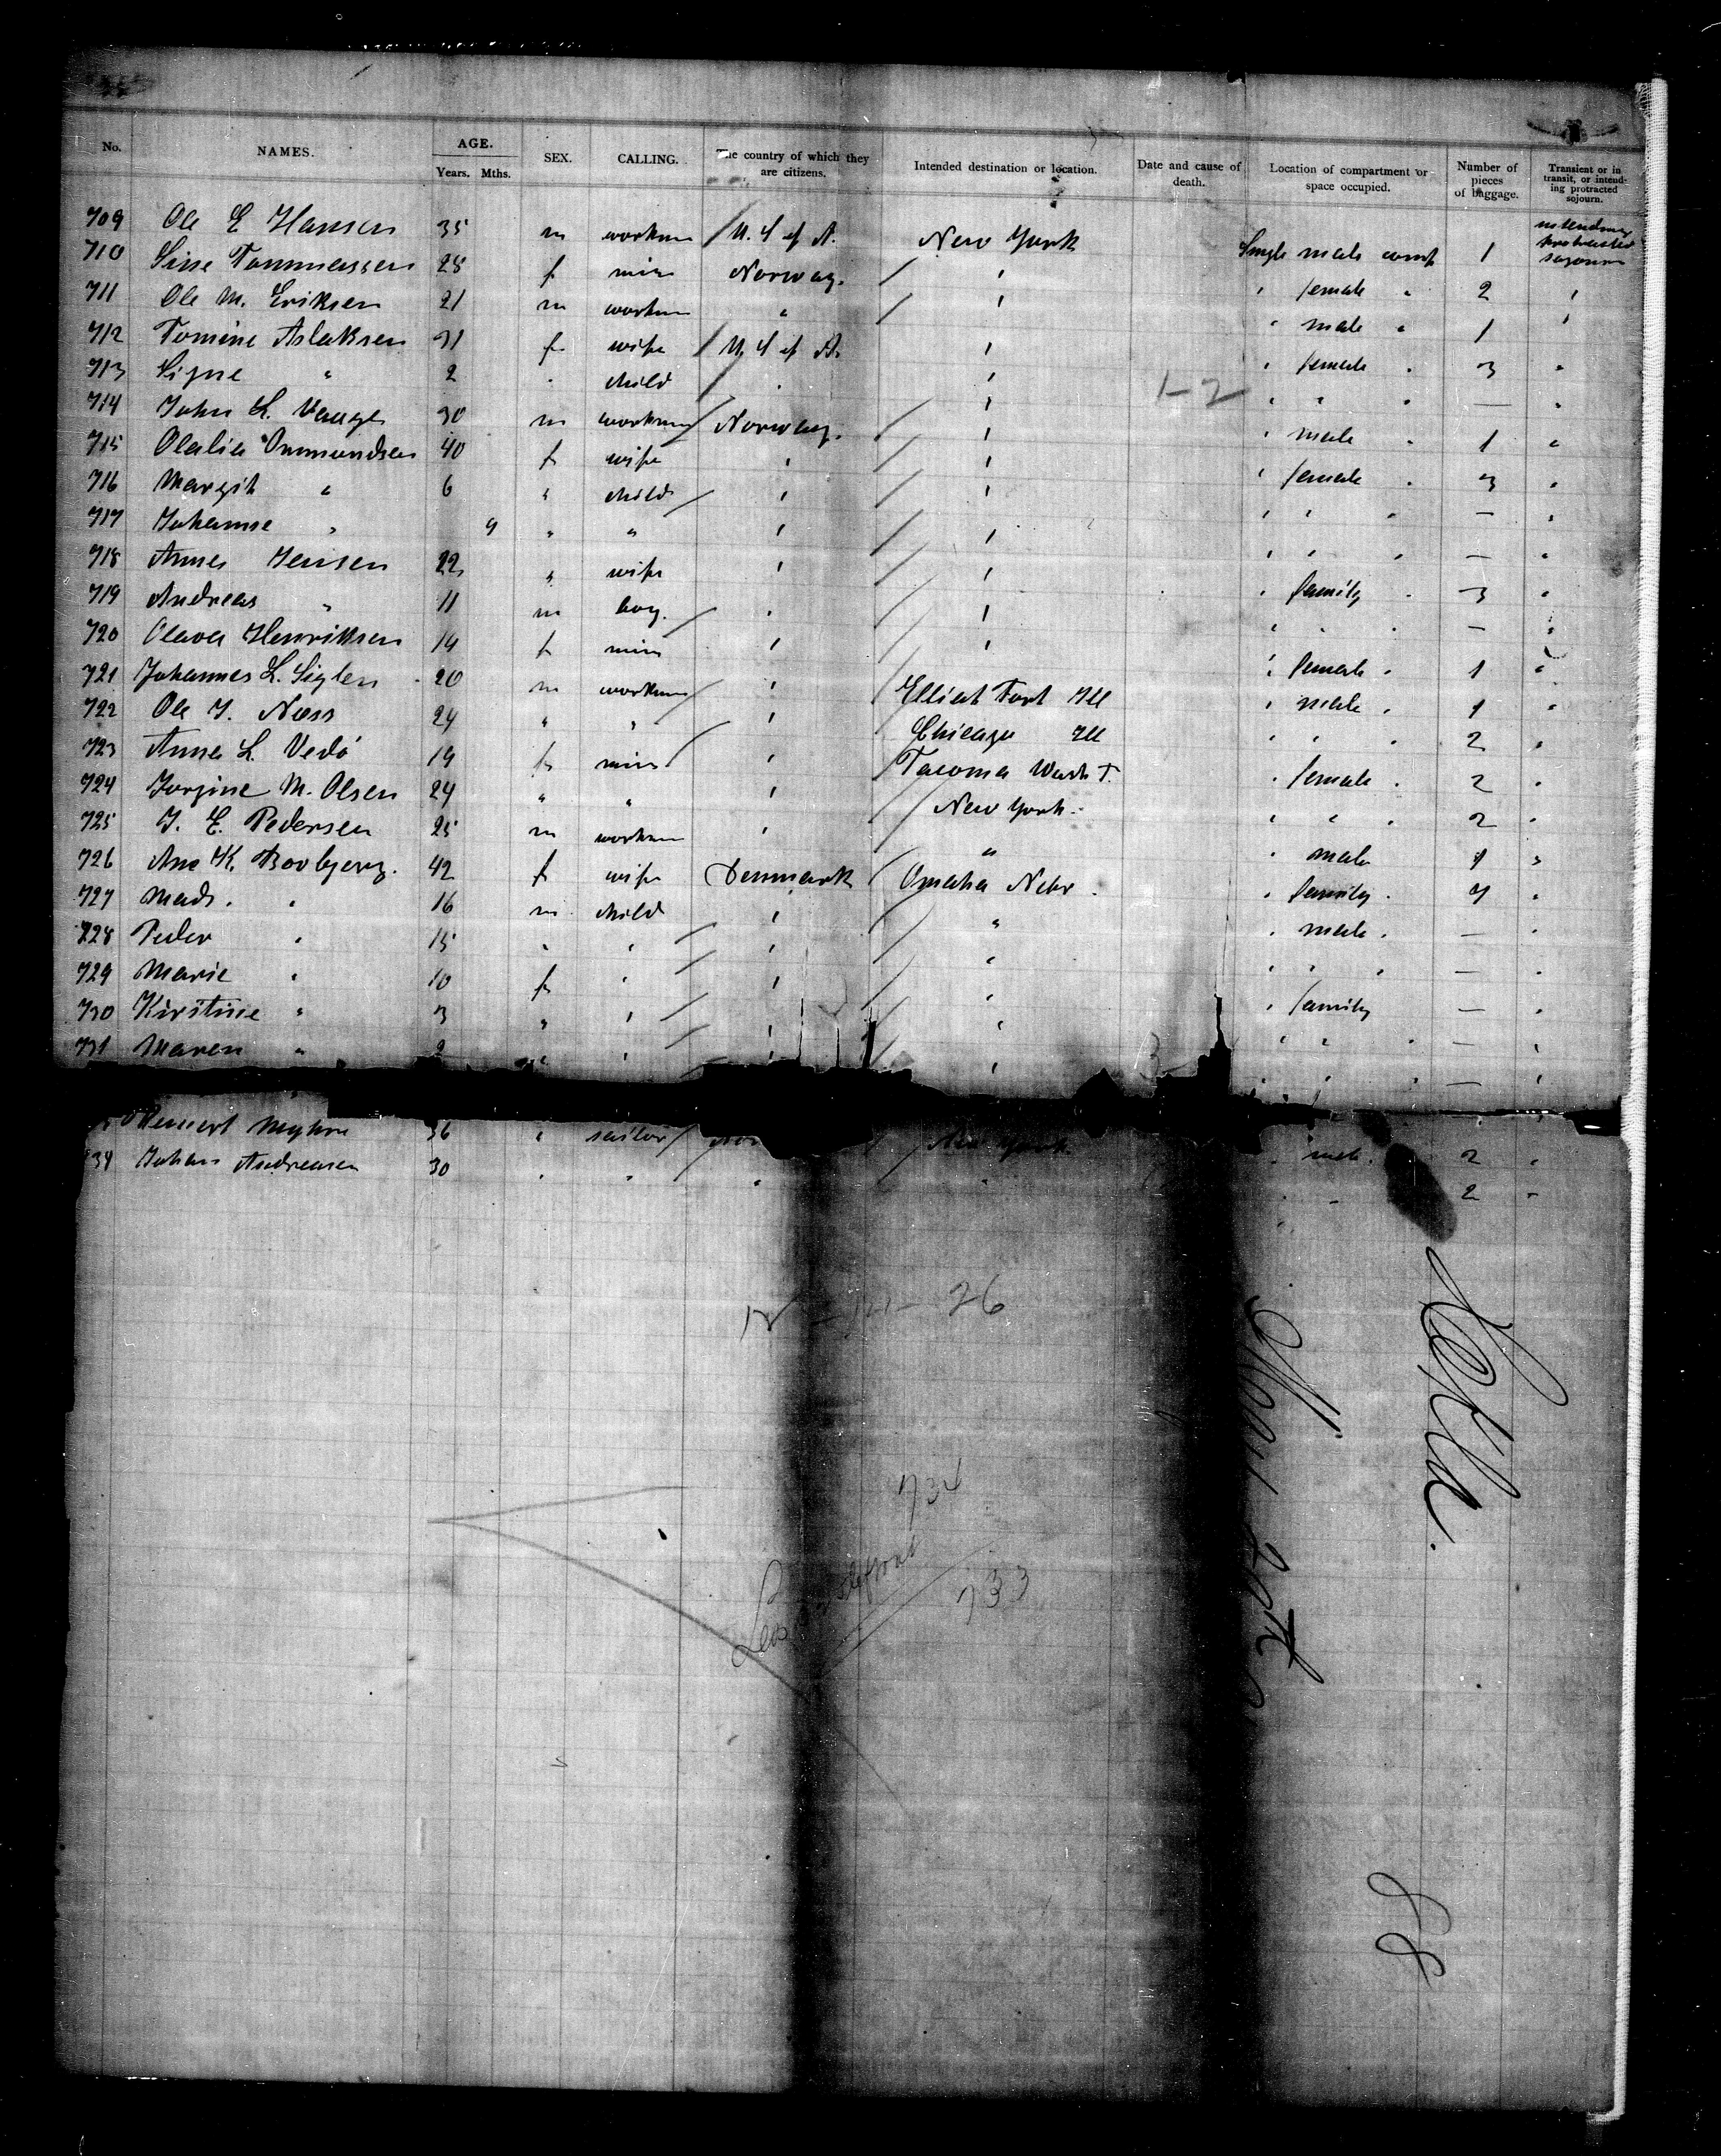 No. NAMES. AGE. Years. Mths. SEX. CALLING. The country of which they are citizens. Intended destination or location. Date and cause of death. Location of compartment or space occupied. Number of pieces of baggage. Transient or in transit, or intending protracted sojourn.
709 Ole E Hansen 35 m workm U. S of A. New York Single male comp 1 intending protracted sojourn
710 Sine Tommassen 28 f Norway. " " female " 2 "
711 Ole M. Eriksen 21 m workm " " " male " 1 "
712 Tomine Aslaksen 31 f wife U. S of A. " " female " 3 "
713 Signe " 2 " child " " 1-2 " " " — "
714 John L. 30 m workm Norway. " " male " 1 "
715 Olalia Ommundsen 40 f wife " " " female " 3 "
716 Margit " 6 " child " " " " " — "
717 Johanne " 9 " " " " " " " — "
718 Anna Jensen 22 " wife " " " family " 3 "
719 Andreas " 11 m boy. " " " " " — "
720 Olava Henriksen 14 f " " " female " 1 "
721 Johannes L. 20 m workm " Elliat Fort Ill " male " 1 "
722 Ole J. Næss 24 " " " Chicago Ill " " " 2 "
723 Anna L. Vedø 19 f " Tacoma Wash T. " female " 2 "
724 Jorgine M. Olsen 24 " " " New York. " " " 2 "
725 J. E. Pedersen 25 m workm " " " male 1 "
726 Ane K. Bovbjerg. 42 f wife Denmark Omaha Nebr. " family " 7 "
727 Mads. " 16 m child " " " male " — "
728 Peder " 15 " " " " " " " — "
729 Marie " 10 f " " " " family — "
730 Kirstine " 3 " " " " " " " — "
731 Maren " 2 " " " " " " " — "
Myhre 36 " sailor New York " male " 2 "
34 Johan Andreasen 30 " " " " " " 2 "
26
734
733
Hekla.
88